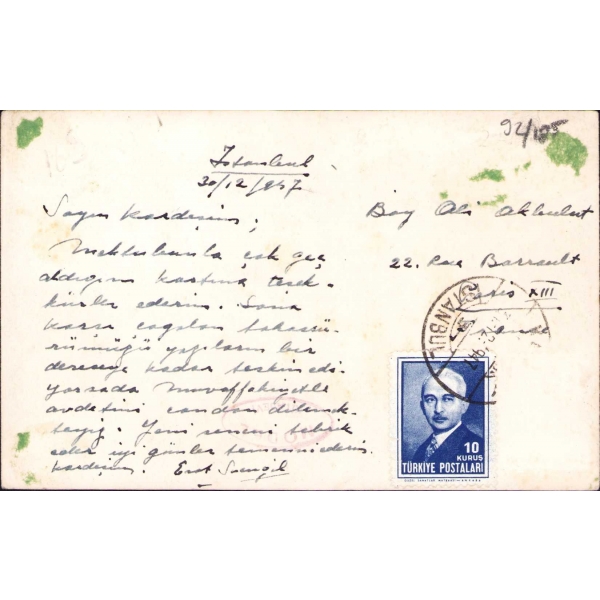 92/105
İstanbul
30/12/947
Sayın kardeşim,
Mektubunla çok geç
aldığım kartına teşek-
kürler ederim. Sana
karşı çoğalan tahassü-
rümüzü yazıların bir
dereceye kadar teskin edi-
yorsada muvaffakiyetle
avdetini candan dilemek-
teyiz. Yeni seneni tebrik
eder iyi günler temennilerim
kardeşim. Erol
Bay Ali Akbulut
22. Rue Barrault
Paris XIII
France
İSTANBUL
10
KURUŞ
TÜRKİYE POSTALARI